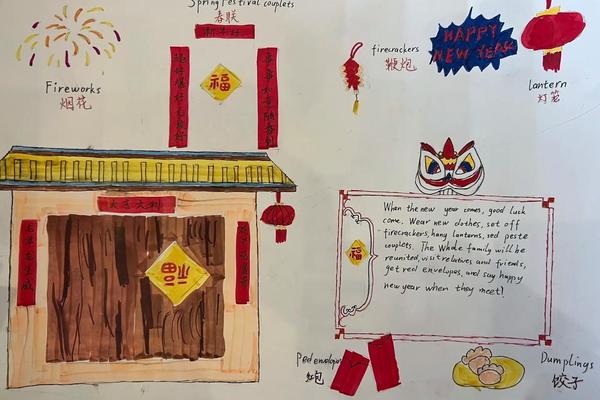 Spring Festival couplets
春联
Fireworks
烟花
福
firecrackers
鞭炮
HAPPY
NEW YEAR
lantern
灯笼
大吉大利
福
When the new year comes, good luck
come. Wear new clothes, set off
firecrackers, hang lanterns, red peste
couplets. The Whole family will be
reunited, visit relatives and friends,
get red envelopes, and say happy
new year when they meet!
福
Red envelope
红包
Dumplings
饺子